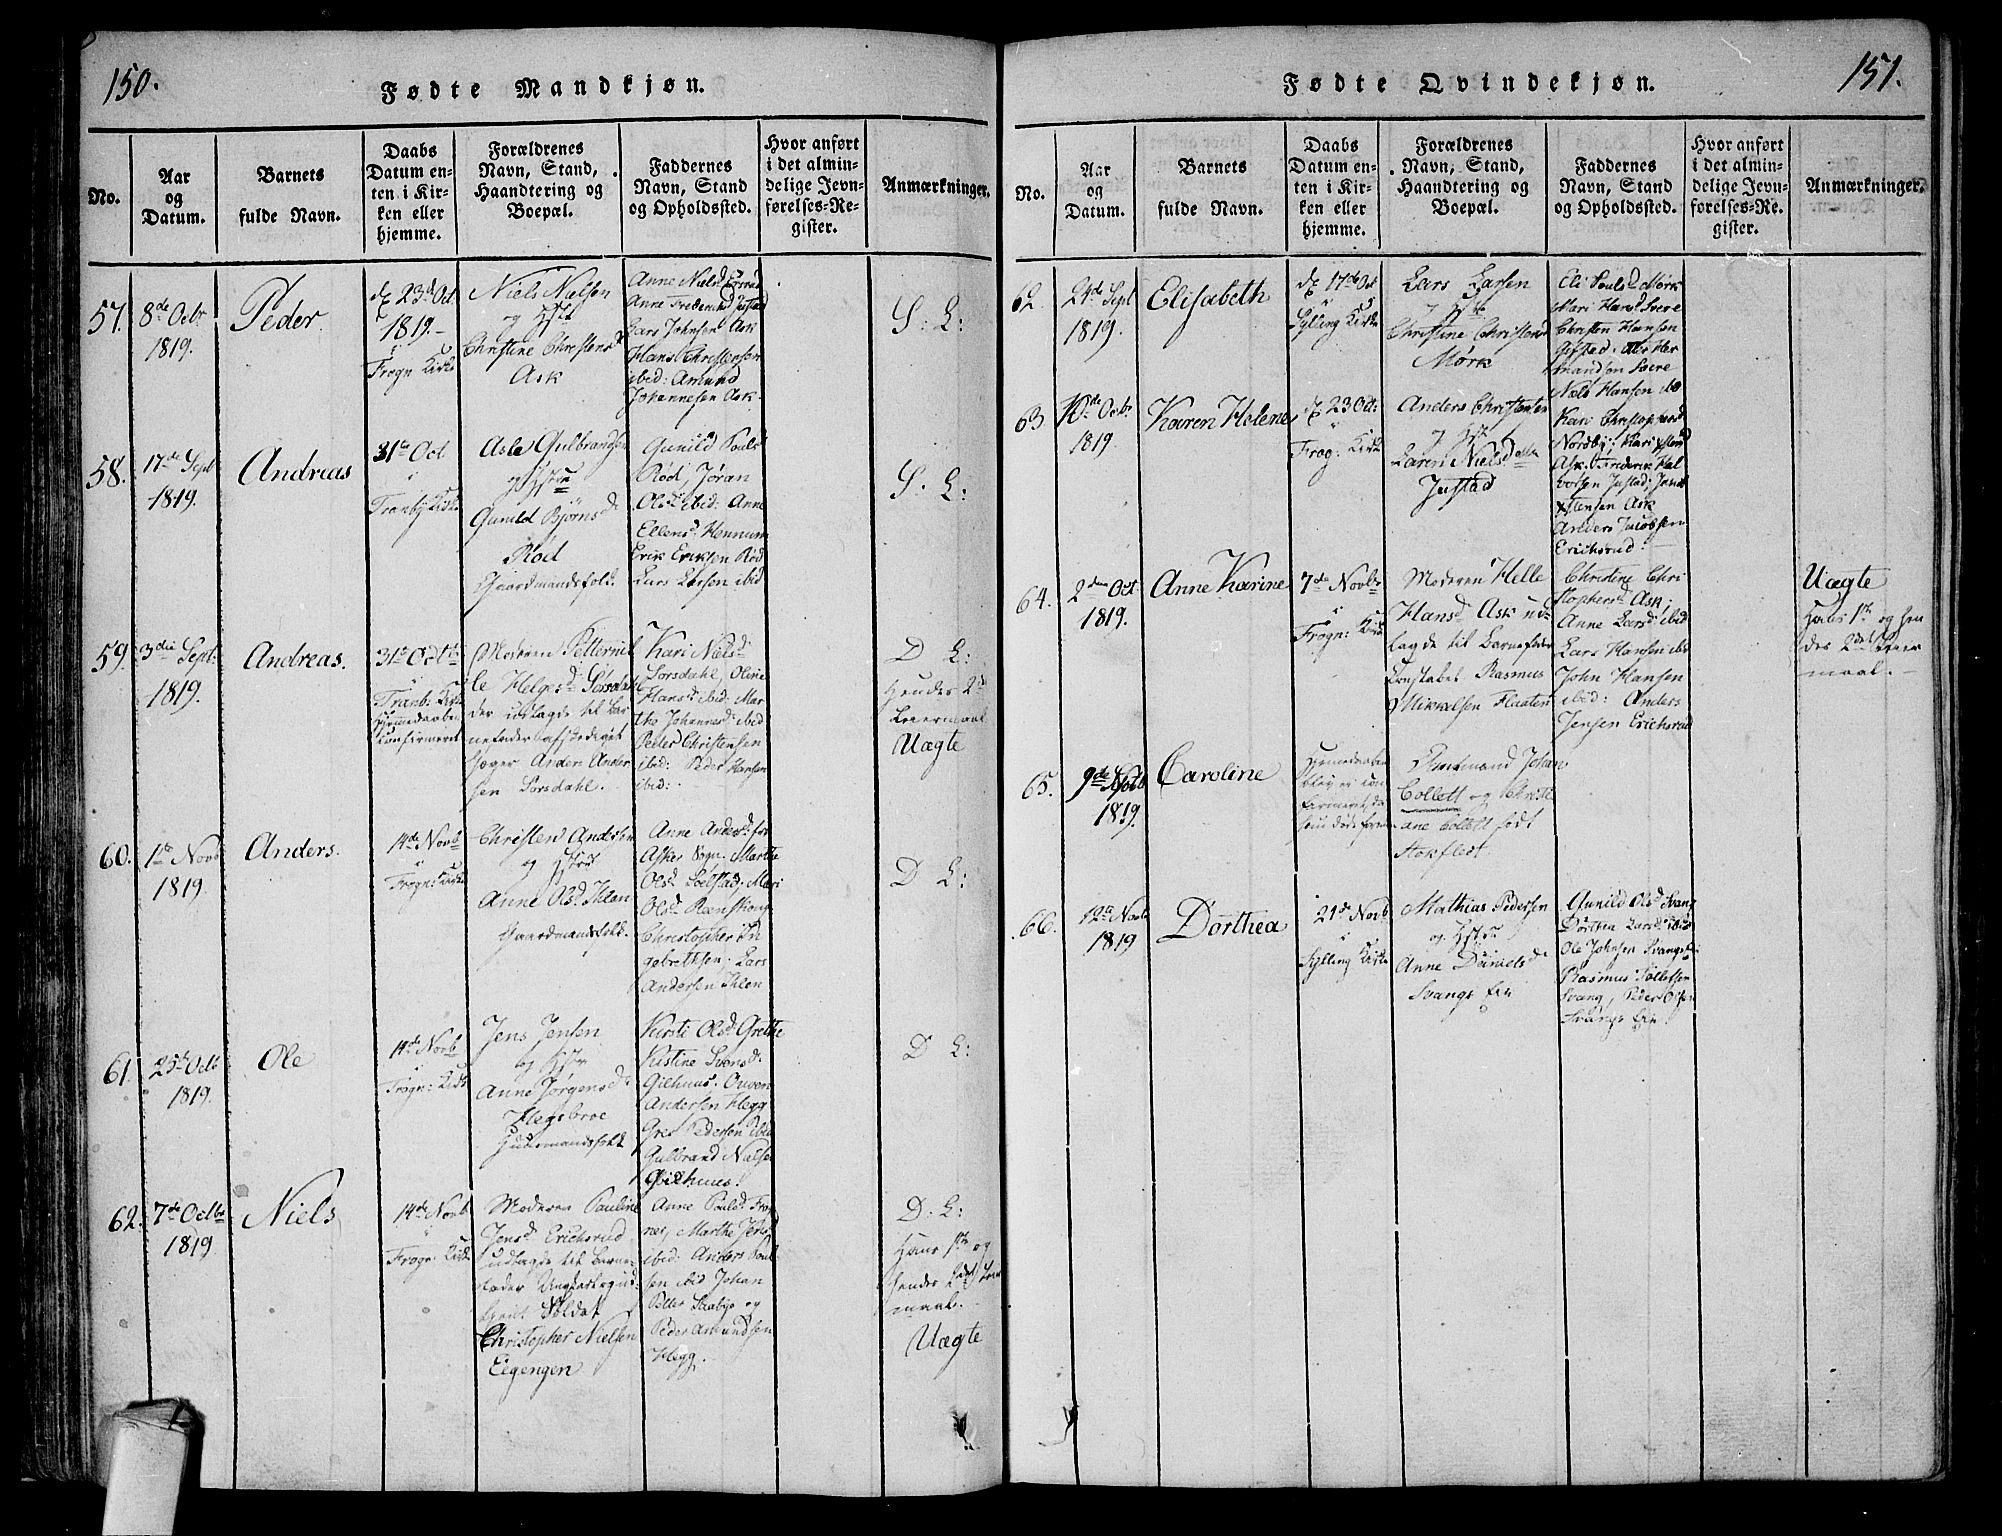 150.
Fødte Mandkjøn.
No.
Aar
og
Datum.
Barnets
fulde Navn.
Daabs
Datum en-
ten i Kir-
ken eller
hjemme.
Forældrenes
Navn, Stand,
Haandtering og
Boepæl.
Faddernes
Navn, Stand
og Opholdssted.
Hvor anført
i det almin-
delige Jevn-
førelses-Re-
gister.
Anmærkninger.
57.
8de Octbr
1819.
Peder
d. 23d Oct.
1819.
Frogn Kirke
Niels Nielsen
og
Christine Christensd
Ask
Anne Nielsd
Anne Frederiksd Justad
Lars Johnsen Ask
Hans Christensen
ibid: Amund
Johannesen Ask.
S: L:
58.
17de Sept
1819.
Andreas
31te Oct
Tranby Kirke
Asle Gulbrandsen
og
Gunild Bjørnsd
Rød
Gaardmandsfolk.
Gunild Pouls
Rød, Jøran
Olsd ibid: Anne
Ellensd: Hennum
Erik Eriksen Rød
Lars Larsen ibid
S. L:
59.
3die Sept:
1819.
Andreas.
31te Octb
Tranb: Kirke
Hjemmedaaben
confirmeret
Moderen Petternil
le Helgesd Sørsdahl
der udlagde til Bar
nefader afskediget
Anders Ander
sen Sørsdahl.
Kari Nielsd:
Sørsdahl, Oline
Hansd ibid: Mar
the Johannesd: ibid
Peder Christensen
ibid: Peder Hansen
ibid:
D L:
Hendes 2d
Leiermaal
Uægte
60.
1ste Novb
1819.
Anders.
14de Novb
Frogn: Kirke
Christen Andersen
og
Anne Olsd Ihlen
Gaardmandsfolk.
Anne Andersd: fra
Asker Sogn. Marthe
Olsd Solstad; Mari
Olsd Reenskoug
Christopher In
gebrethsen; Lars
Andersen Ihlen
D L:
61.
25de Octb
1819.
Ole
14de Novb
Frogn: Kirke
Jens Jensen
og
Anne Jørgensd:
Hegsbroe
Huusmandsfolk
Kirsti Olsd Grethe
Kistine Svensd:
Gilhuus. Ouven
Andersen Hegg
Gres Pedersen ibid
Gulbrand Nielsen
Gilhuus.
D L:
62.
7de Octbr
1819
Niels
14de Novb
Frogn: Kirke
Moderen Pauline
Jensd Erichsrud
udlagde til Barne-
fader Ungkarl og
Soldat
Christopher Nielsen
Eegengen
Anne Pouls Frog
ner, Marthe
ibid: Anders Poul
sen ibid Johan
Petter Saabye og
Peder Amundsen
Hegg.
D: L:
Hans 1ste og
hendes 2det Leier
maal.
Uægte
151.
Fødte Qvindekjøn.
No.
Aar
og
Datum.
Barnets
fulde Navn.
Daabs
Datum en-
ten i Kir-
ken eller
hjemme.
Forældrenes
Navn, Stand,
Haandtering og
Boepæl.
Faddernes
Navn, Stand
og Opholdssted.
Hvor anført
i det almin-
delige Jevn-
førelses-Re-
gister.
Anmærkninger.
62.
24de Sept
1819.
Elisabeth
d. 17de Oct
Sylling Kirke
Lars Larsen
og
Christine Christensd
Mørk
Eli Poulsd Mørk
Mari Hansd Svere
Christen Hansen
Gifstad. Her
mandsen Svere
Niels Hansen ibd
63
10de Octbr
1819.
Karen Helene
d. 23 Oct:
Frog: Kirke
Anders Christensen
og
Karen Nielsdatter
Justad
Kari Christophersd
Nordby; Kari
Ask. Frederik Hal
vorsen Justad; Jens
Ask
Anders Jacobsen
Erichsrud:
64.
2den Oct
1819.
Anne Karine
7de Novb
Frogn: Kirke
Moderen Helle
Hansd Ask ud-
lagde til Barnefader
Konstabel Rasmus
Mikkelsen Flaaten
Christine Chri
stophersd Ask;
Anne Larsd: ibid
Lars Hansen ibd
John Hansen
ibid: Anders
Jensen Erichsrud
Uægte
Hans 1ste og hen
des 2det Leier
maal.
65.
9de
1819.
Caroline
Hjemmedaaben
blev ei con
firmeret, da
døde forinden
Johan
Collett og Christi
ane Collett født
Stokfledt.
66.
12te Novb
1819
Dorthea
21de Novb
Sylling Kirke
Mathias Pedersen
og
Anne Danielsd
Svangs Eie
Gunild Olsd Svang
Dorthea Larsd: ibid
Ole Johnsen Svangs Ei
Rasmus Tollefsen
Svang, Peder Olsen
Svangs Eie.